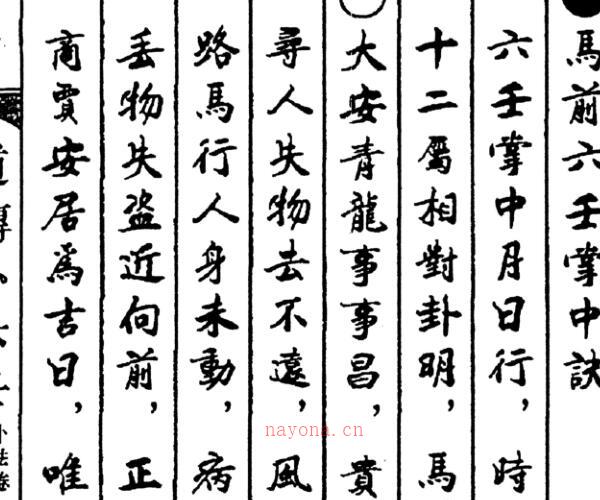 馬前六壬掌中訣
六壬掌中月日行，時
十二屬相對卦明，馬
大安青龍事事昌，貴
尋人失物去不遠，風
路馬行人身未動，病
丢物失盜近向前，正
商賈安居爲吉日，唯
nayona.cn